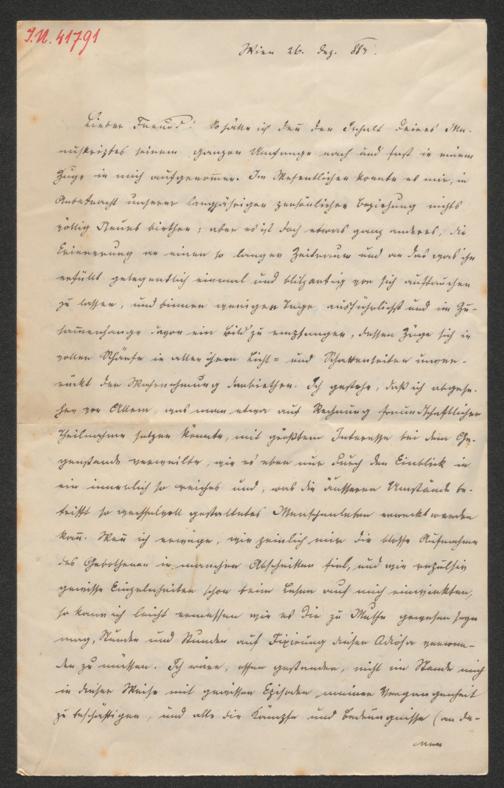 I.N. 41791
Wien 26. Dez. 81
Lieber Freund! So hätte ich denn den Inhalt Deines Ma-
nuskriptes seinem ganzen Umfange nach und fast in einem
Zuge in mich aufgenommen. Im Wesentlichen konnte es mir, in
Anbetracht unserer langjährigen persönlichen Beziehung nichts
völlig Neues biethen; aber es ist doch etwas ganz anderes, die
Erinnerung an einen so langen Zeitraum und an das was ihn
erfüllt gelegentlich einmal und blitzartig vor sich auftauchen
zu lassen, und binnen weniger Tage ausführlichst und im Zu-
sammenhange davon ein Bild zu empfangen, dessen Züge sich in
voller Schärfe in allen ihren Licht- und Schattenseiten unver-
rückt der Wahrnehmung darbiethen. Ich gestehe, daß ich abgese-
hen von Allem, was man etwa auf Rechnung freundschaftlicher
Theilnahme setzen könnte, mit größtem Interesse bei dem Ge-
genstande verweilte, wie es eben nur durch den Einblick in
ein innerlich so reiches und, was die äusseren Umstände be-
trifft so wechselvoll gestaltetes Menschenleben erweckt werden
kann. Wenn ich erwäge, wie peinlich mir die blosse Aufnahme
des Gebothenen in manchen Abschnitten fiel, und wie
gewisse Einzelnheiten schon beim Lesen auf mich einwirkten,
so kann ich leicht ermessen wie es Dir zu Muthe gewesen seyn
mag, Stunden und Stunden auf Fixirung dieser verwen-
den zu müssen. Ich wäre, offen gestanden, nicht im Stande mich
in dieser Weise mit gewissen Episoden meiner Vergangenheit
zu beschäftigen, und alle die Kämpfe und Bedrängnisse (an de-
nen